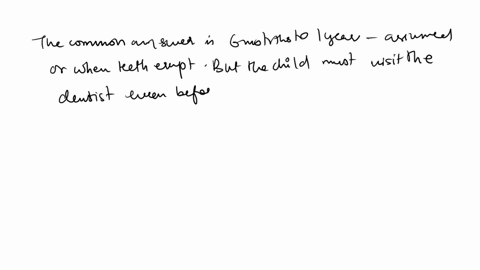 The common answer is 6months to 1year - assumed
or when teeth erupt. But the child must visit the
dentist even befo